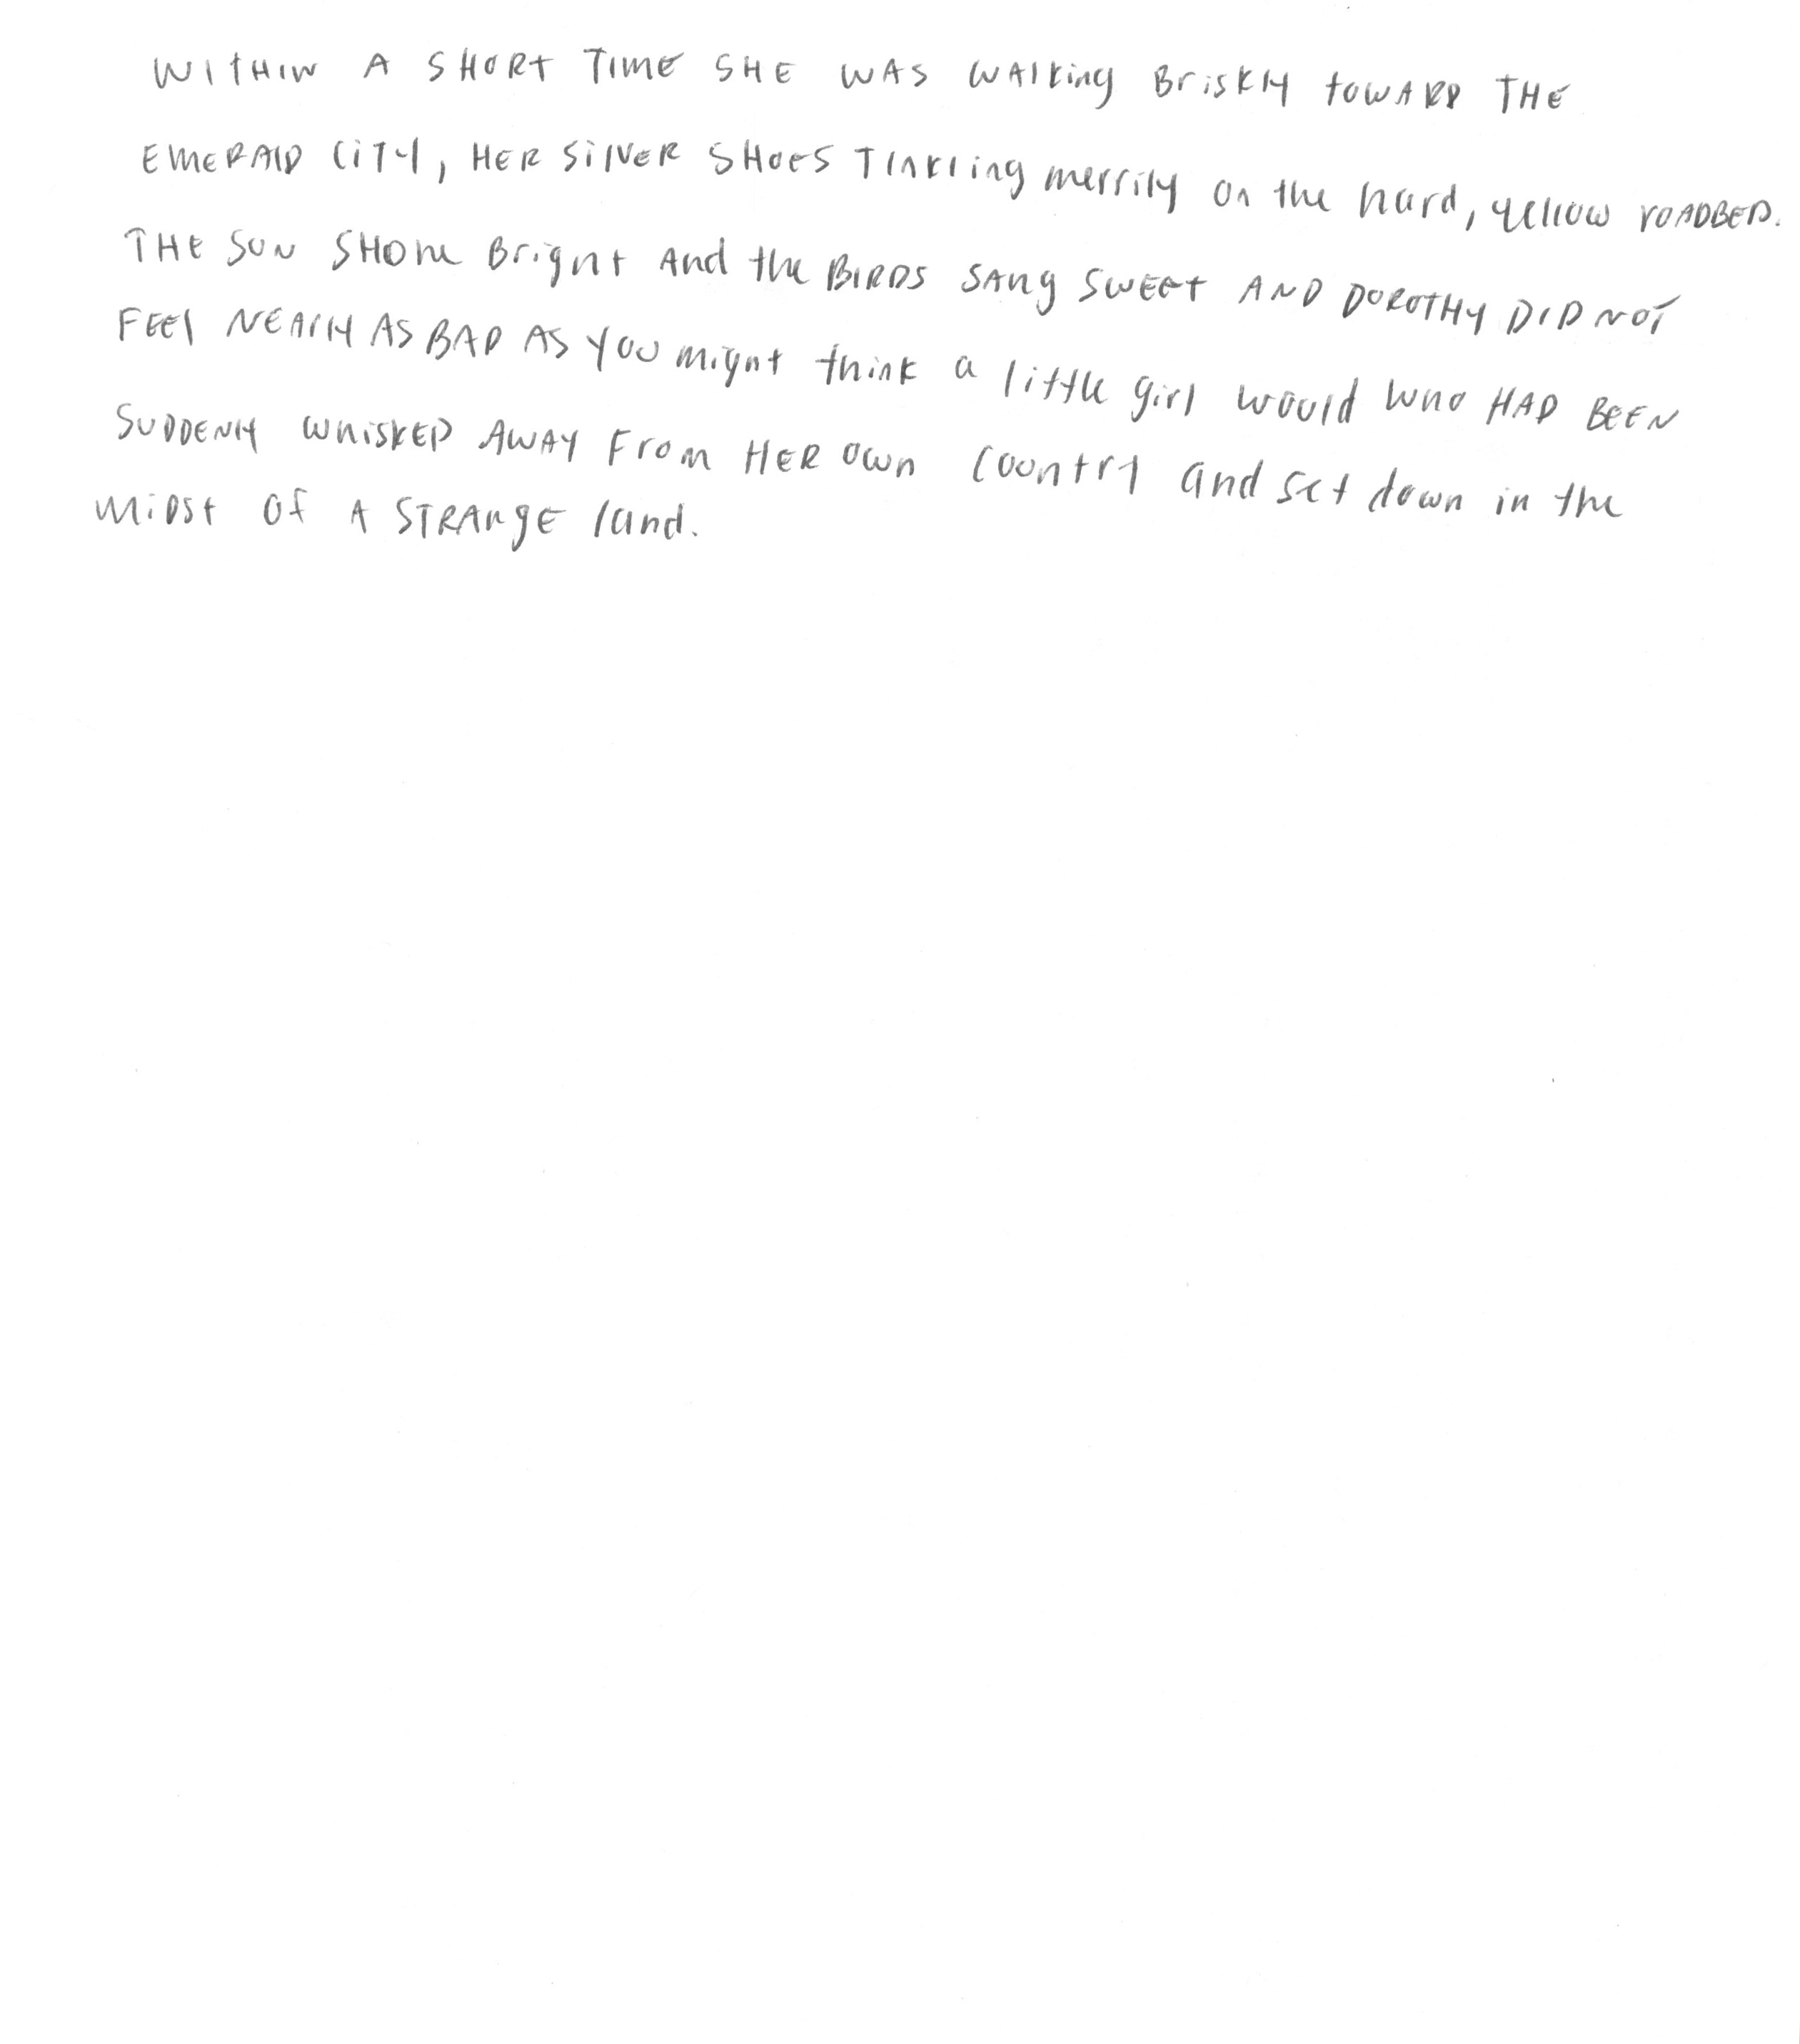 WITHIN A SHORT TIME SHE WAS WAlking BrisKly toWARD THE
EMERAlD CiTY, HER SilVER SHOES TInkling merrily on the hard, yellow rOADBED.
THE SUN SHOne Bright And the BIRDS SAng SWEEt AND DOROTHY DID NOT
FEEl NEArly AS BAD AS YOU might think a little girl would who HAD BEEN
SUDDENly whisKED AWAY From HER Own Country and set down in the
MiDst Of A STRAngE land.